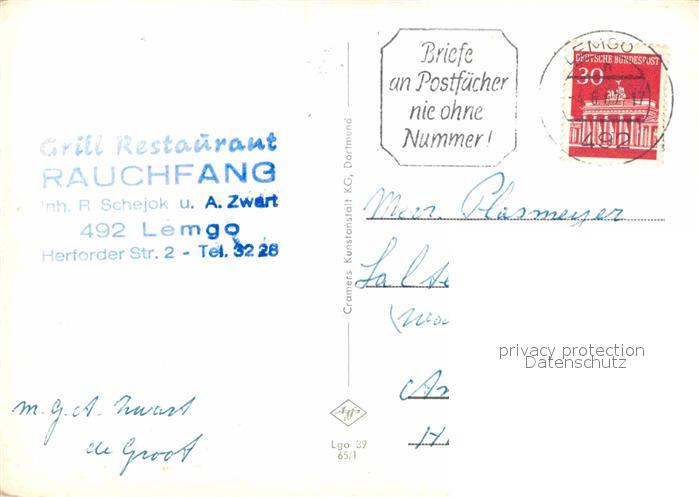 Grill Restaurant
RAUCHFANG
Inh. R. Schejok u. A. Zwart
492 Lemgo
Herforder Str. 2 - Tel. 32 28
m. G. A. Zwart
de Groot
Cramers Kunstanstalt KG, Dortmund
Agfa
Lgo 39
65/1
Briefe
an Postfächer
nie ohne
Nummer!
LEMGO
DEUTSCHE BUNDESPOST
30
492
Plasmeyer
privacy protection
Datenschutz